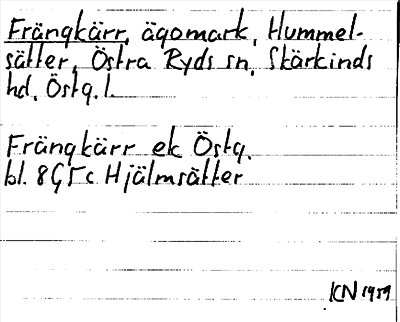 Frängkärr, ägomark, Hummel-
sätter, Östra Ryds sn, Skärkinds
hd, Östg. l.
Frängkärr ek Östg.
bl. 8G5c Hjälmsätter
KN 1959